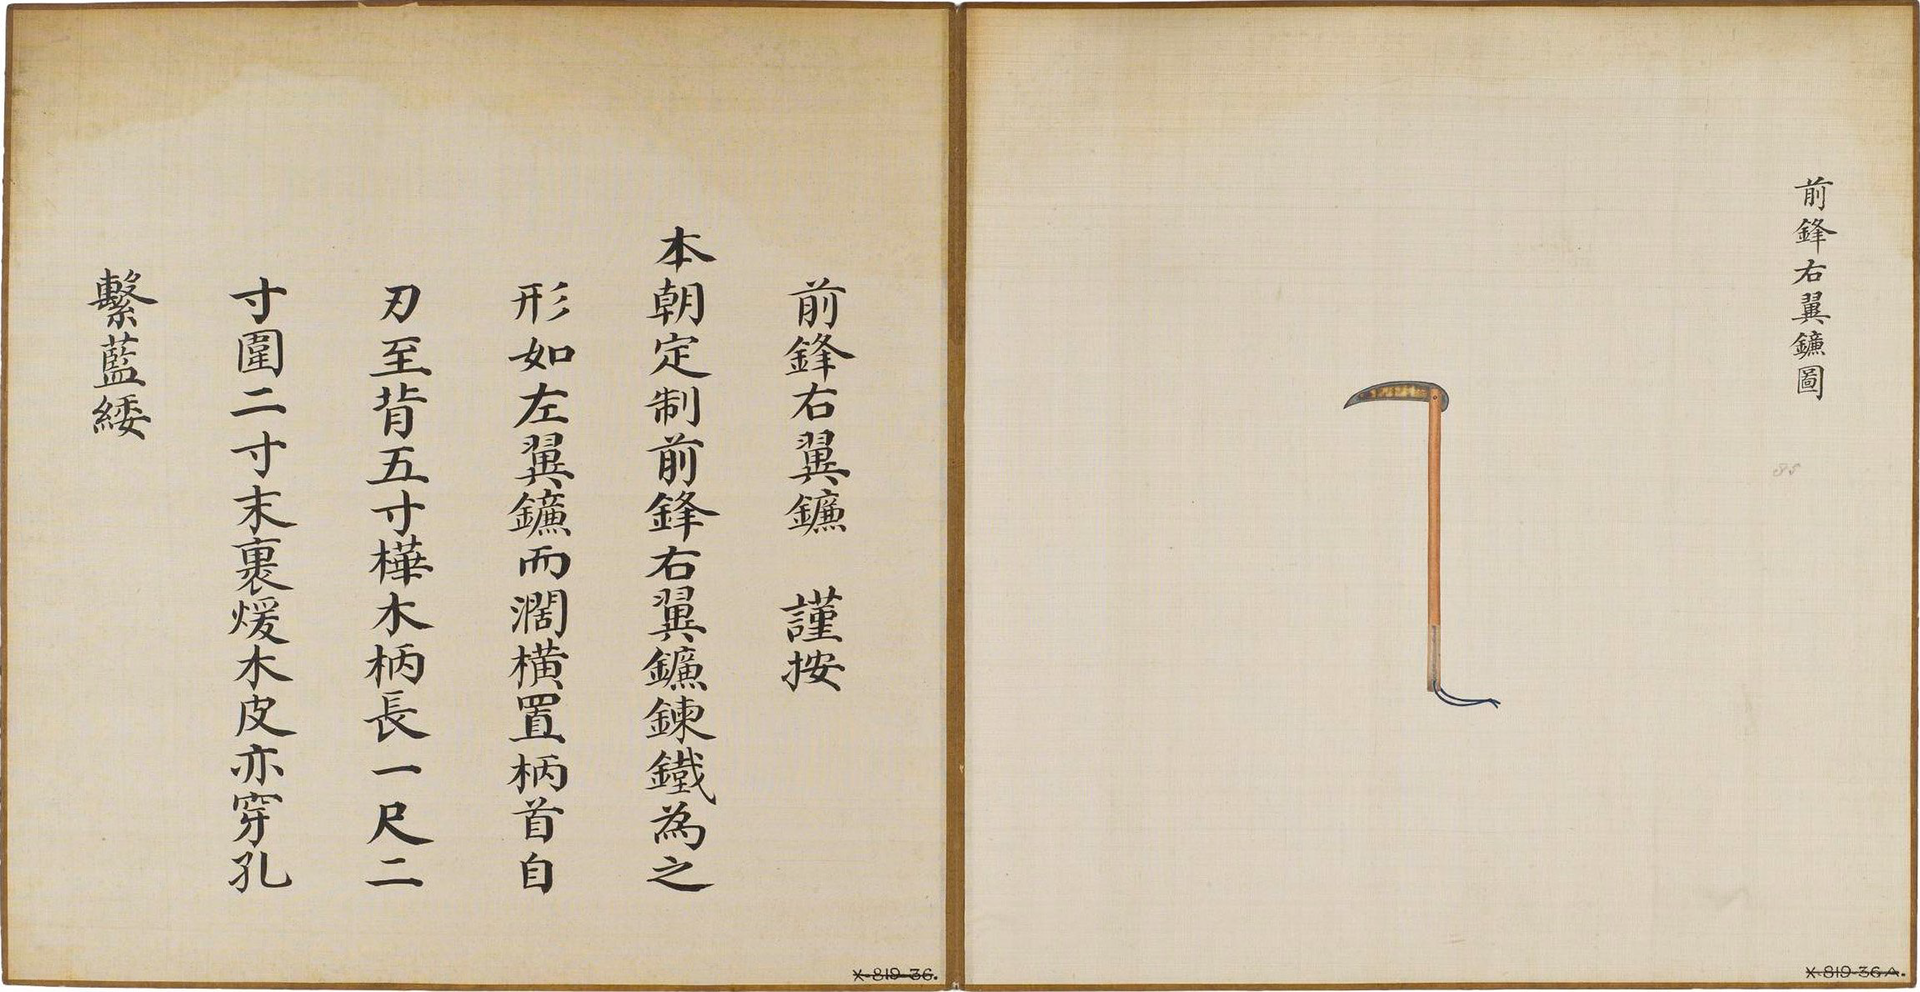 前鋒右翼鐮圖
85
X-819-36A.
前鋒右翼鐮　謹按
本朝定制前鋒右翼鐮鍊鐵為之
形如左翼鐮而濶橫置柄首自
刃至背五寸樺木柄長一尺二
寸圍二寸末裹煖木皮亦穿孔
繫藍緌
X-819-36.